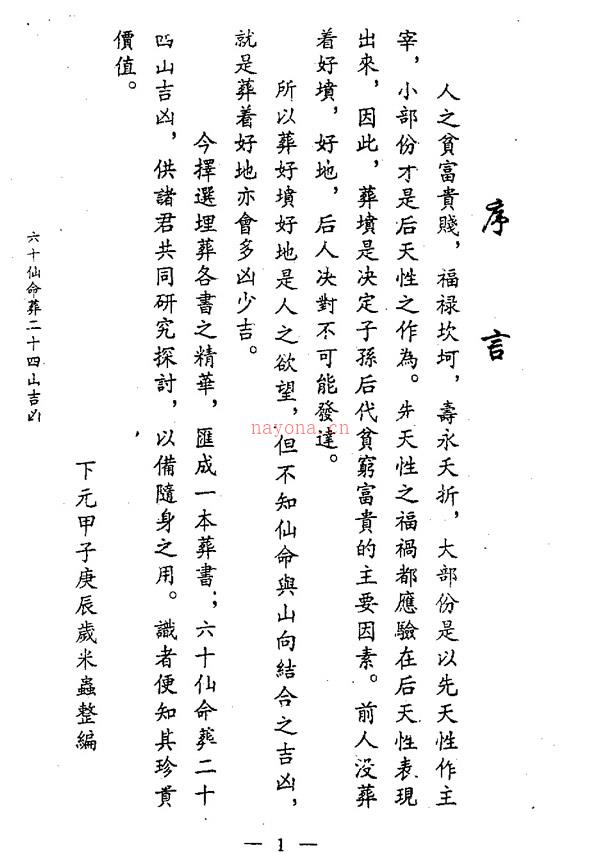 序言
人之貧富貴賤，福禄坎坷，壽永夭折，大部份是以先天性作主
宰，小部份才是后天性之作為。先天性之福禍都應驗在后天性表現
出來，因此，葬墳是決定子孫后代貧窮富貴的主要因素。前人没葬
着好墳，好地，后人决對不可能發達。
所以葬好墳好地是人之欲望，但不知仙命與山向結合之吉凶，
就是葬着好地亦會多凶少吉。
今擇選埋葬各書之精華，匯成一本葬書；六十仙命葬二十
四山吉凶，供諸君共同研究探討，以備隨身之用。識者便知其珍貴
價值。
下元甲子庚辰歲米蟲整編
六十仙命葬二十四山吉凶
— 1 —
nayona.cn